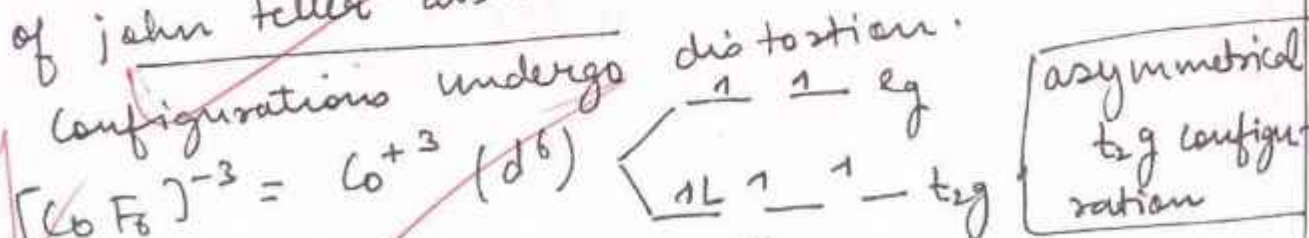 of john teller
configurations undergo distortion.
1 1 eg
[CoF6]-3 = Co+3 (d6) 1L 1 1 t2g
asymmetrical
t2g configu-
ration